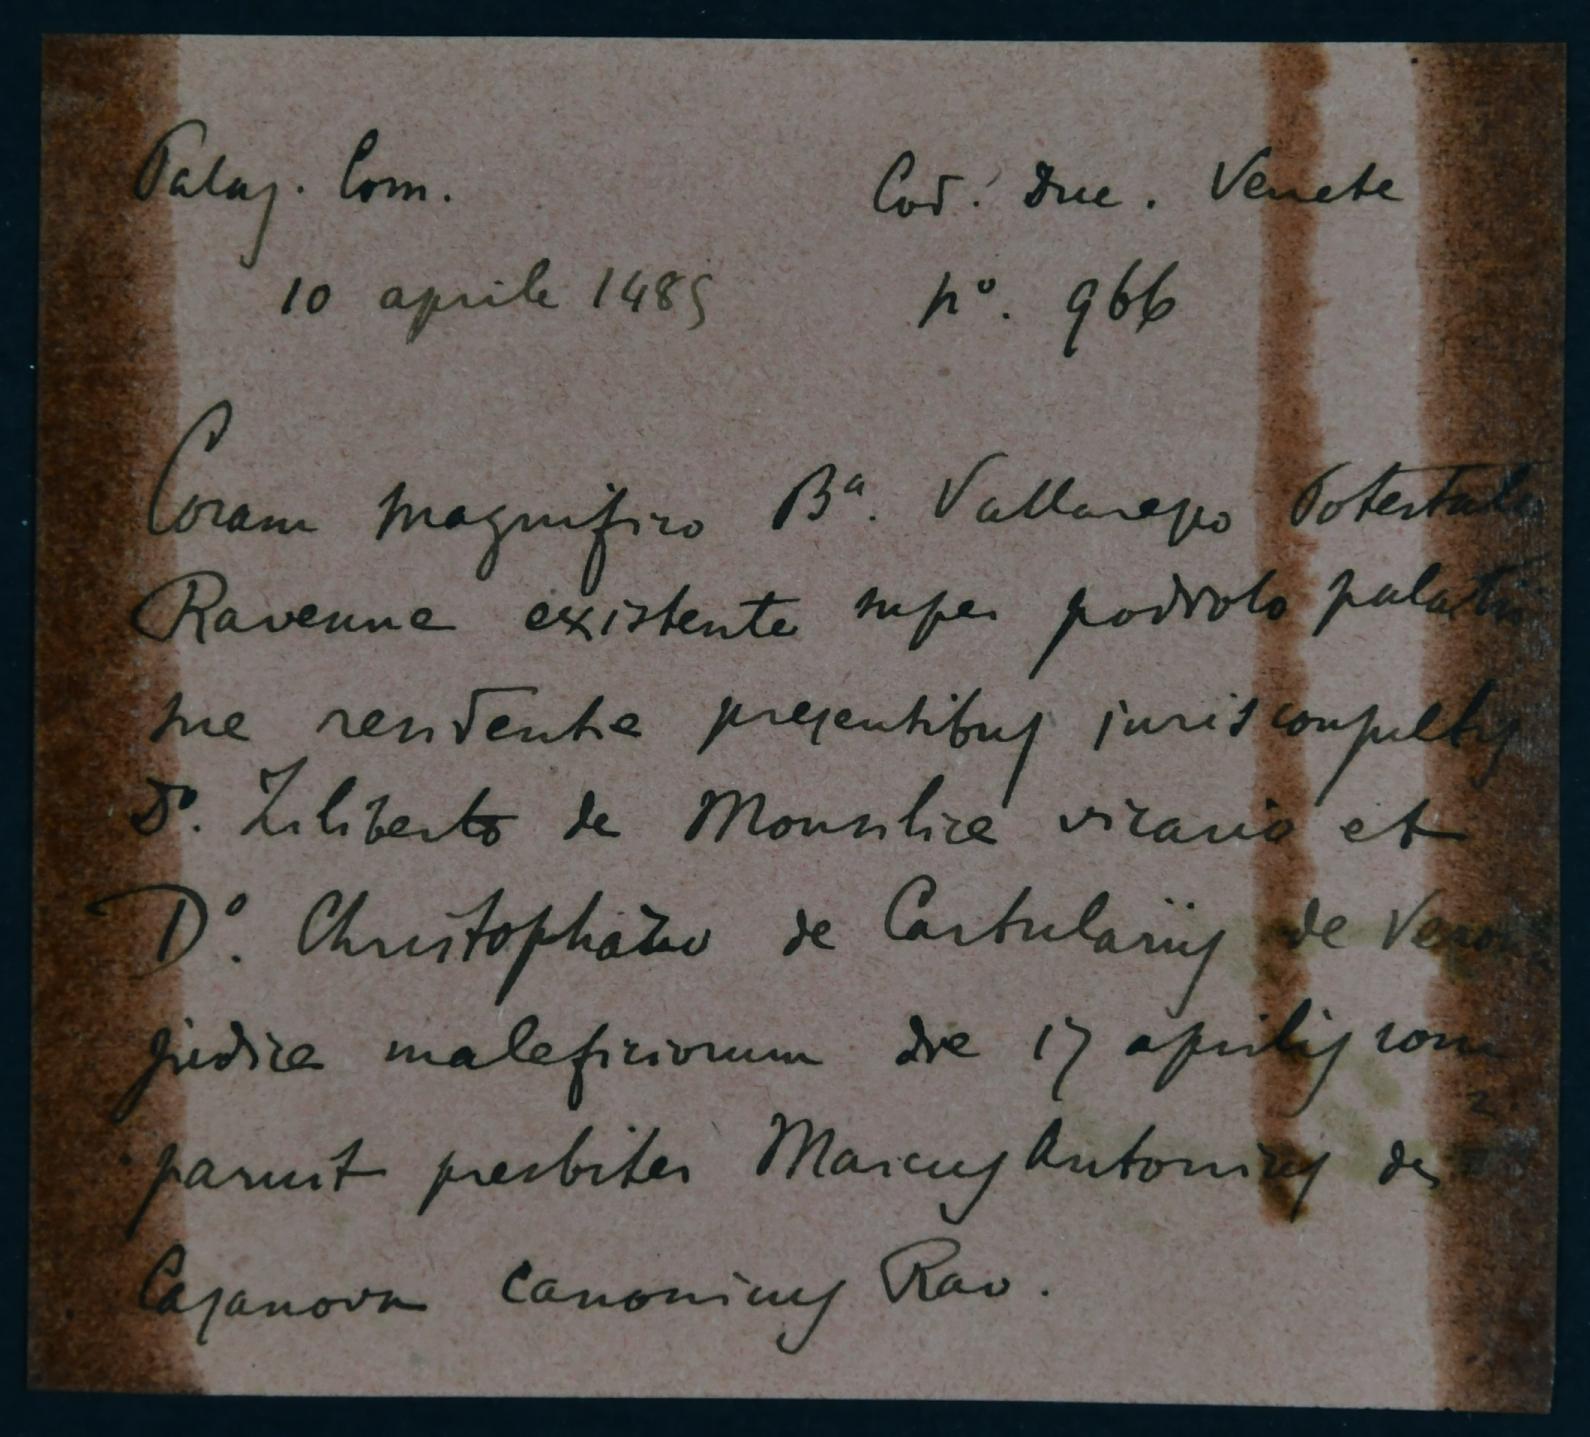 Palaz. Com. Cod. Duc. Venete
10 aprile 1485 n°. 966
Coram magnifico Bª. Vallaresso Potestate
Ravenne existente super podiolo palatii
sue residentie presentibus jurisconsultis
D°. Ziliberto de Monsilice vicario et
D°. Christophoro de Cartulariis de Verona
judice maleficiorum die 17 aprilis com
paruit presbiter Marcus Antonius de
Casanova canonicus Rav.